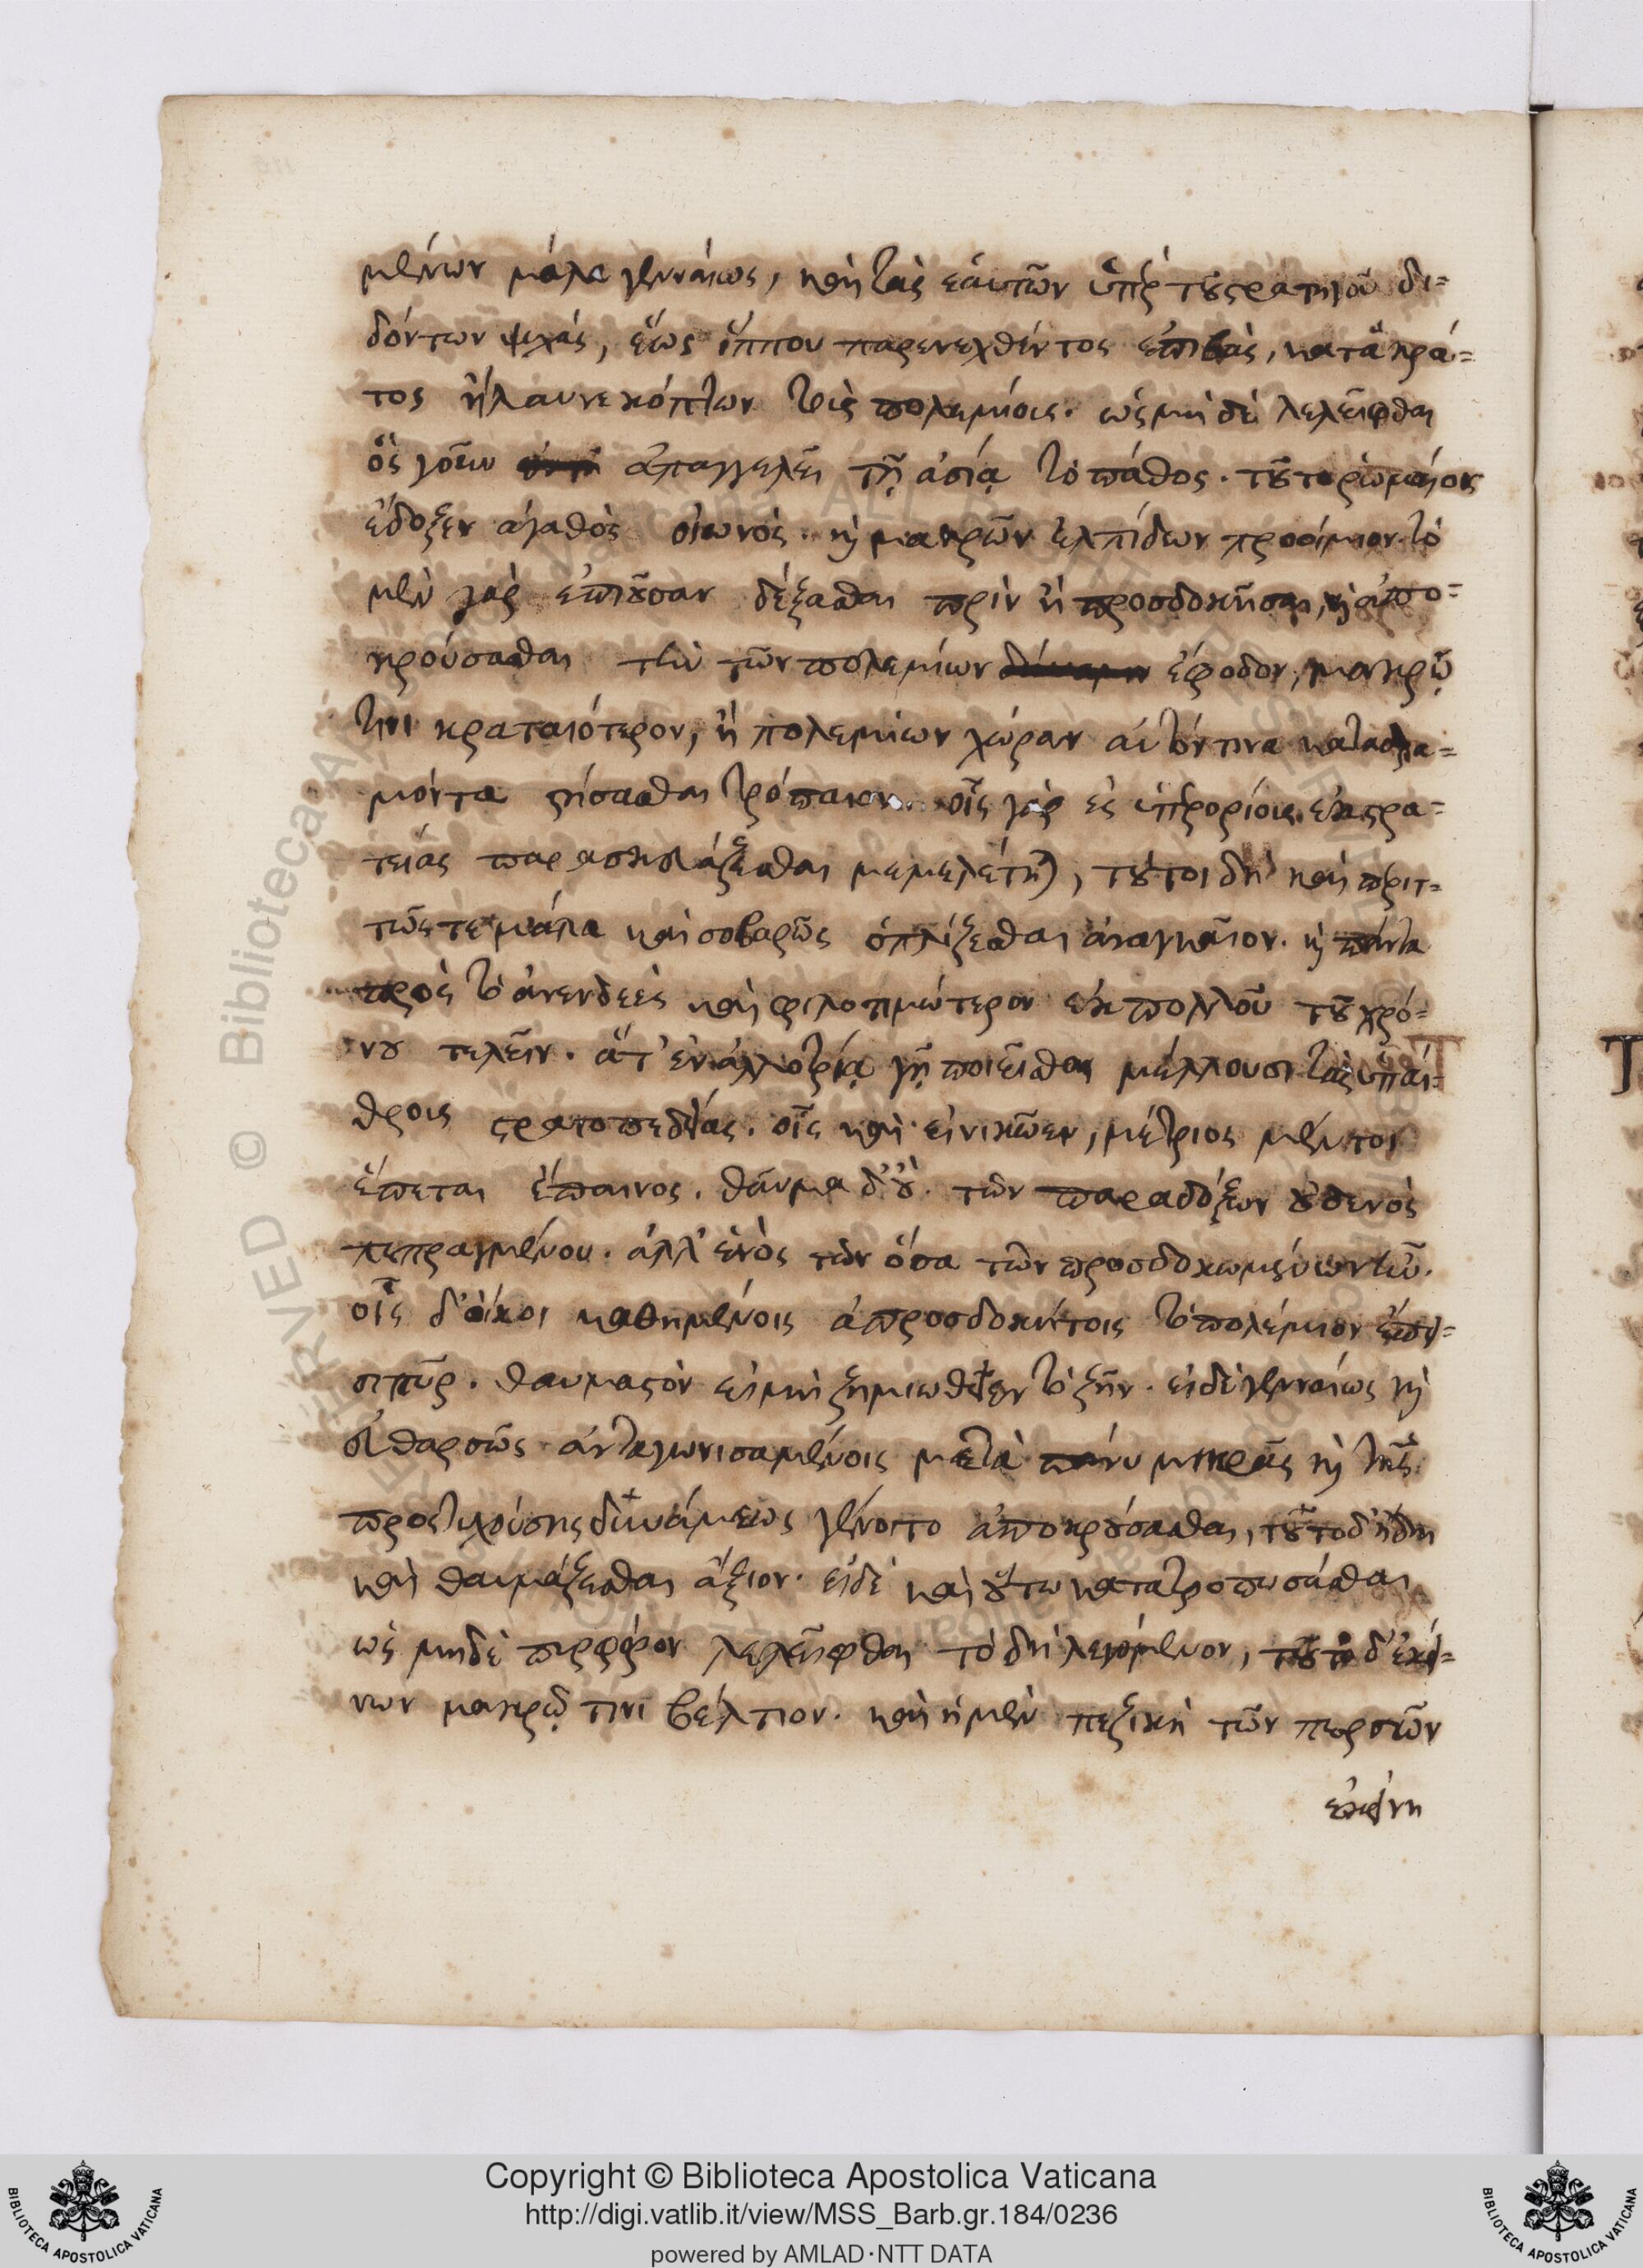 μένων μάλα γενναίως, καὶ τὰς ἑαυτῶν ὑπὲρ τοῦ στρατηγοῦ δι-
δόντων ψυχάς, ἕως ἵππου παρενεχθέντος ἐπιβὰς, κατὰ κρά-
τος ἤλαυνε κόπτων τοὺς πολεμίους. ὡς μηδὲ λελεῖφθαι
ὃς γοῦν ἀπαγγελεῖ τῇ ἀσίᾳ τὸ πάθος. τοῦτο ῥωμαίοις
ἔδοξεν ἀγαθὸς οἰωνὸς. καὶ μακρῶν ἐλπίδων προοίμιον. τὸ
μὲν γὰρ ἐπιοῦσαν δέξασθαι πρὶν ἢ προσδοκῆσαι, καὶ ἀπο-
κρούσασθαι τὴν τῶν πολεμίων ἔφοδον, μακρῷ
τινι κραταιότερον, ἢ πολεμίων χώραν αὐτόν τινα καταδρα-
μόντα στήσασθαι τρόπαιον. οἷς γὰρ ἐς ὑπερορίους ἐκστρα-
τείας παρασκευάζεσθαι μεμελέτηται, τούτοι δὴ καὶ περιτ-
τῶς τε μάλα καὶ σοβαρῶς ὁπλίζεσθαι ἀναγκαῖον. καὶ πάντα
πρὸς τὸ ἀνενδεὲς καὶ φιλοτιμώτερον ἐκ πολλοῦ τοῦ χρό-
νου τελεῖν. ἅτ' ἐν ἀλλοτρίᾳ γῇ ποιεῖσθαι μέλλουσι τὰς ὑπαί-
θρους στρατοπεδείας. οἷς καὶ εἰ νικῷεν, μέτριος μέν τοι
ἕπεται ἔπαινος. θαῦμα δ' οὐ. τῶν παραδόξων οὐδενὸς
πεπραγμένου. ἀλλ' ἑνὸς τῶν ὅσα τῶν προσδοκωμένων ἦν.
οἷς δ' οἴκοι καθημένοις ἀπροσδοκήτοις τὸ πολέμιον ἔπει-
σι πῦρ. θαυμαστὸν εἰ μὴ ζημιωθεῖεν τὸ ζῆν. εἰ δὲ γενναίως καὶ
εὐθαρσῶς ἀνταγωνισαμένοις μετὰ πάνυ μικρᾶς καὶ τῆς
προστυχούσης δυνάμεως γένοιτο ἀποκρούσασθαι, τοῦτο δ' ἤδη
καὶ θαυμάζεσθαι ἄξιον. εἰ δὲ καὶ οὕτω κατατροπώσασθαι
ὡς μηδὲ πυρφόρον λελεῖφθαι τὸ δὴ λεγόμενον, τοῦτο δ' ἐκεί-
νων μακρῷ τινι βέλτιον. καὶ ἡ μὲν πεζικὴ τῶν περσῶν
ἐκείνη
Copyright © Biblioteca Apostolica Vaticana
http://digi.vatlib.it/view/MSS_Barb.gr.184/0236
powered by AMLAD·NTT DATA
BIBLIOTECA APOSTOLICA VATICANA
BIBLIOTECA APOSTOLICA VATICANA